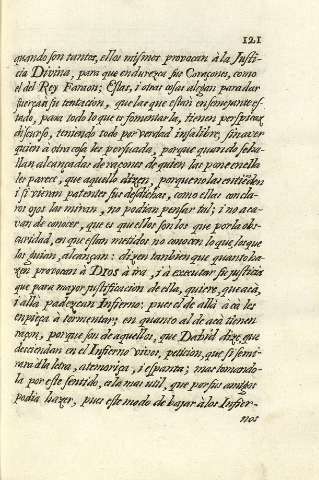 121
quando son tantos, ellos mismos provocan à la Justi-
cia Divina, para que endurezca sus Coraçones, como
el del Rey Faraon; Estas, i otras cosas alegan para dar
fuerza a su tentacion, que las que estan en semejante es-
tado, para todo lo que es fomentarla, tienen perspicaz
discurso, teniendo todo por verdad infalible, sin aver
quien a otra cosa les persuada, porque quando se ha-
llan alcançadas de raçones de quien las pone en ello
les parece, que aquello dizen, porque no las entiēden
i si vieran patentes sus desdichas, como ellas con cla-
ros ojos las miran, no podian pensar tal; i no aca-
van de conocer, que es que ellos son los que por la obs-
curidad, en que estan metidos no conocen lo que, los que
los guian, alcançan: dizen tambien que quanto ha-
zen provocan à Dios à ira, i à executar su justicia
que para mayor justificacion de ella, quiere, que acà,
i allà padezcan Infierno; pues el de allà a cà les
empieça à tormentar; en quanto al de acà tienen
raçon, porque son de aquellos, que David dize, que
desciendan en el Infierno vivos, peticion, que si se mi-
rara à la letra, atemoriça, i espanta; mas tomando-
la por este sentido, es la mas util, que por sus amigos
podia hazer, pues este modo de bajar à los Infier-
nos